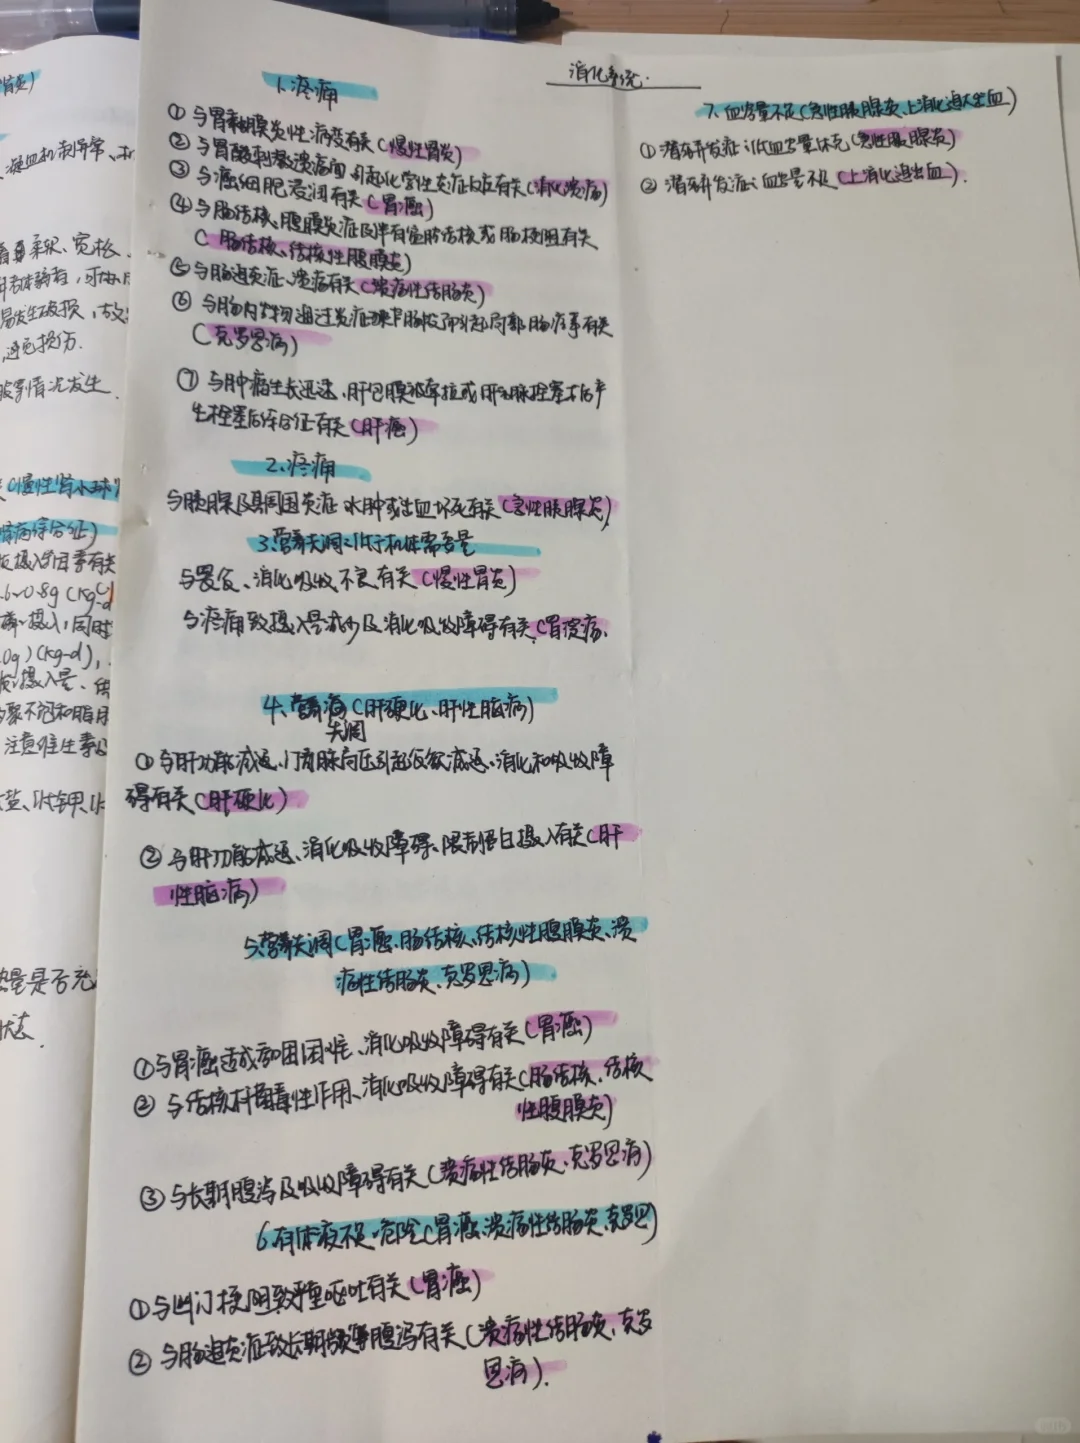 消化系统.
1.疼痛
①与胃黏膜炎性病变有关(慢性胃炎)
②与胃酸刺激溃疡面引起化学性炎症反应有关(消化溃疡)
③与癌细胞浸润有关(胃癌)
④与肠结核、腹膜炎症及伴有盆腔结核或肠梗阻有关
(肠结核、结核性腹膜炎)
⑤与肠道炎症、溃疡有关(溃疡性结肠炎)
⑥与肠内容物通过炎症狭窄肠段而引起局部肠痉挛有关
(克罗恩病)
⑦与肿瘤生长迅速、肝包膜被牵拉或肝动脉栓塞术后产
生栓塞后综合征有关(肝癌)
2.疼痛
与胰腺及其周围炎症水肿或出血坏死有关(急性胰腺炎)
3.营养失调:低于机体需要量
与畏食、消化吸收不良有关(慢性胃炎)
与疼痛致摄入量减少及消化吸收障碍有关(胃溃疡.
4.营养失调(肝硬化、肝性脑病)
①与肝功能减退、门静脉高压引起食欲减退、消化和吸收障
碍有关(肝硬化)
②与肝功能减退、消化吸收障碍、限制蛋白摄入有关(肝
性脑病)
5.营养失调(胃癌、肠结核、结核性腹膜炎、溃
疡性结肠炎、克罗恩病)
①与胃癌造成吞咽困难、消化吸收障碍有关(胃癌)
②与结核杆菌毒性作用、消化吸收障碍有关(肠结核、结核
性腹膜炎)
③与长期腹泻及吸收障碍有关(溃疡性结肠炎、克罗恩病)
6.有体液不足危险(胃癌、溃疡性结肠炎、克罗恩)
①与幽门梗阻致严重呕吐有关(胃癌)
②与肠道炎症致长期频繁腹泻有关(溃疡性结肠炎、克罗
恩病).
7.血容量不足(急性胰腺炎、上消化道大出血)
①潜在并发症:低血容量休克(急性胰腺炎)
②潜在并发症:血容量不足(上消化道出血).
凝血机制异常、
柔软、宽松、
易发生破损,故
避免损伤.
等情况发生.
(慢性肾小球
病综合征)
摄入等因素有关
摄入,同时
摄入量、
不饱和脂肪
注意维生素及
盐、低钾
量是否充
状态.